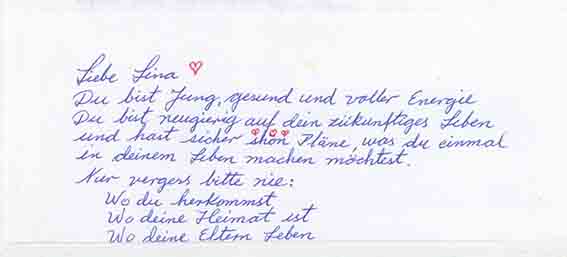 Liebe Lina ♡
Du bist Jung, gesund und voller Energie
Du bist neugierig auf dein zukünftiges Leben
und hast sicher shön Pläne, was du einmal
in deinem Leben machen möchtest.
Nur vergess bitte nie:
Wo du herkommst
Wo deine Heimat ist
Wo deine Eltern Leben